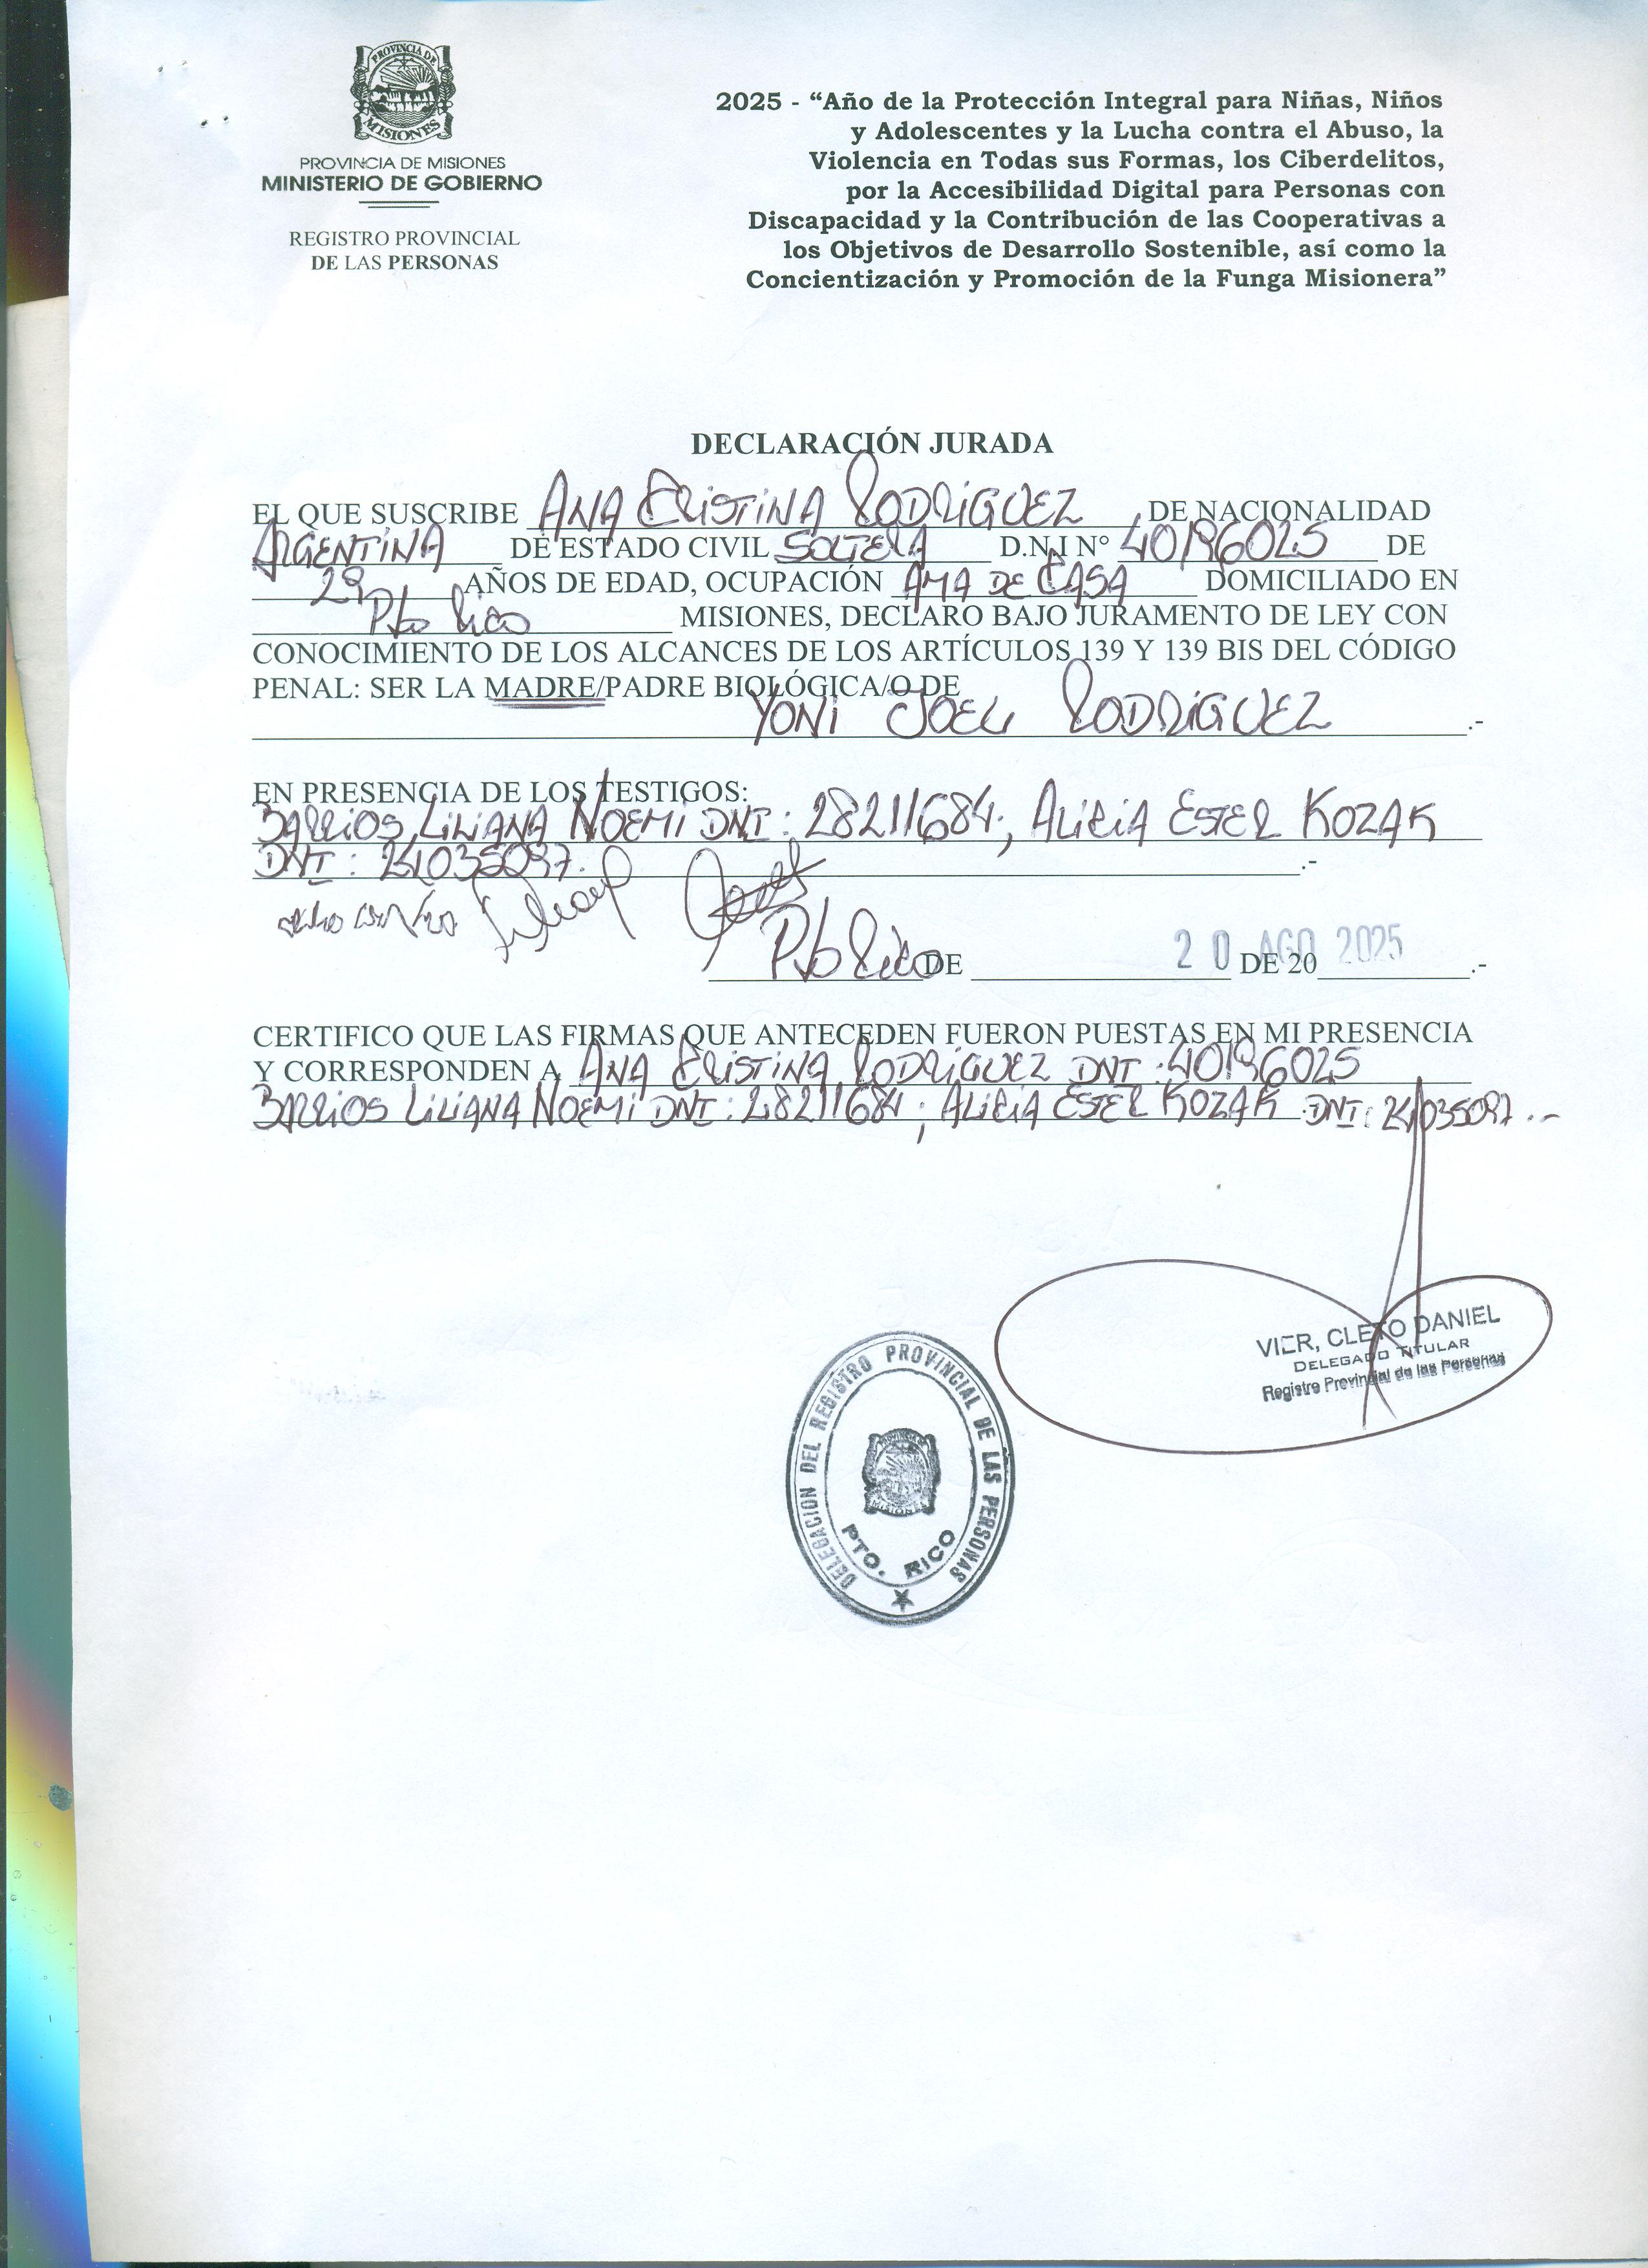 PROVINCIA DE
MISIONES
PROVINCIA DE MISIONES
MINISTERIO DE GOBIERNO
REGISTRO PROVINCIAL
DE LAS PERSONAS
2025 - “Año de la Protección Integral para Niñas, Niños
y Adolescentes y la Lucha contra el Abuso, la
Violencia en Todas sus Formas, los Ciberdelitos,
por la Accesibilidad Digital para Personas con
Discapacidad y la Contribución de las Cooperativas a
los Objetivos de Desarrollo Sostenible, así como la
Concientización y Promoción de la Funga Misionera”
DECLARACIÓN JURADA
EL QUE SUSCRIBE ANA CRISTINA RODRIGUEZ DE NACIONALIDAD
ARGENTINA DE ESTADO CIVIL SOLTERA D.N.I N° 40196025 DE
29 AÑOS DE EDAD, OCUPACIÓN AMA DE CASA DOMICILIADO EN
Pto Rico MISIONES, DECLARO BAJO JURAMENTO DE LEY CON
CONOCIMIENTO DE LOS ALCANCES DE LOS ARTÍCULOS 139 Y 139 BIS DEL CÓDIGO
PENAL: SER LA MADRE/PADRE BIOLÓGICA/O DE
YONI JOEL RODRIGUEZ .-
EN PRESENCIA DE LOS TESTIGOS:
BARRIOS LILIANA NOEMI DNI: 28211684; ALICIA ESTER KOZAK
DNI: 24035097. .-
Pto Rico DE 20 AGO 2025 DE 20 .-
CERTIFICO QUE LAS FIRMAS QUE ANTECEDEN FUERON PUESTAS EN MI PRESENCIA
Y CORRESPONDEN A ANA CRISTINA RODRIGUEZ DNI: 40196025
BARRIOS LILIANA NOEMI DNI: 28211684; ALICIA ESTER KOZAK DNI: 24035097.-
VIER, CLETO DANIEL
DELEGADO TITULAR
Registro Provincial de las Personas
DELEGACION DEL REGISTRO PROVINCIAL DE LAS PERSONAS
PROVINCIA DE
MISIONES
PTO. RICO